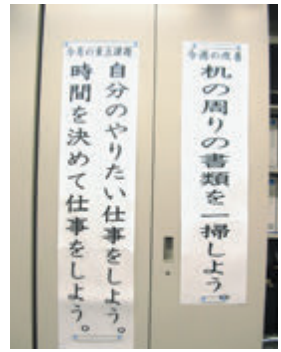 今週の改善
机の周りの書類を一掃しよう。
今月の重点課題
自分のやりたい仕事をしよう。
時間を決めて仕事をしよう。